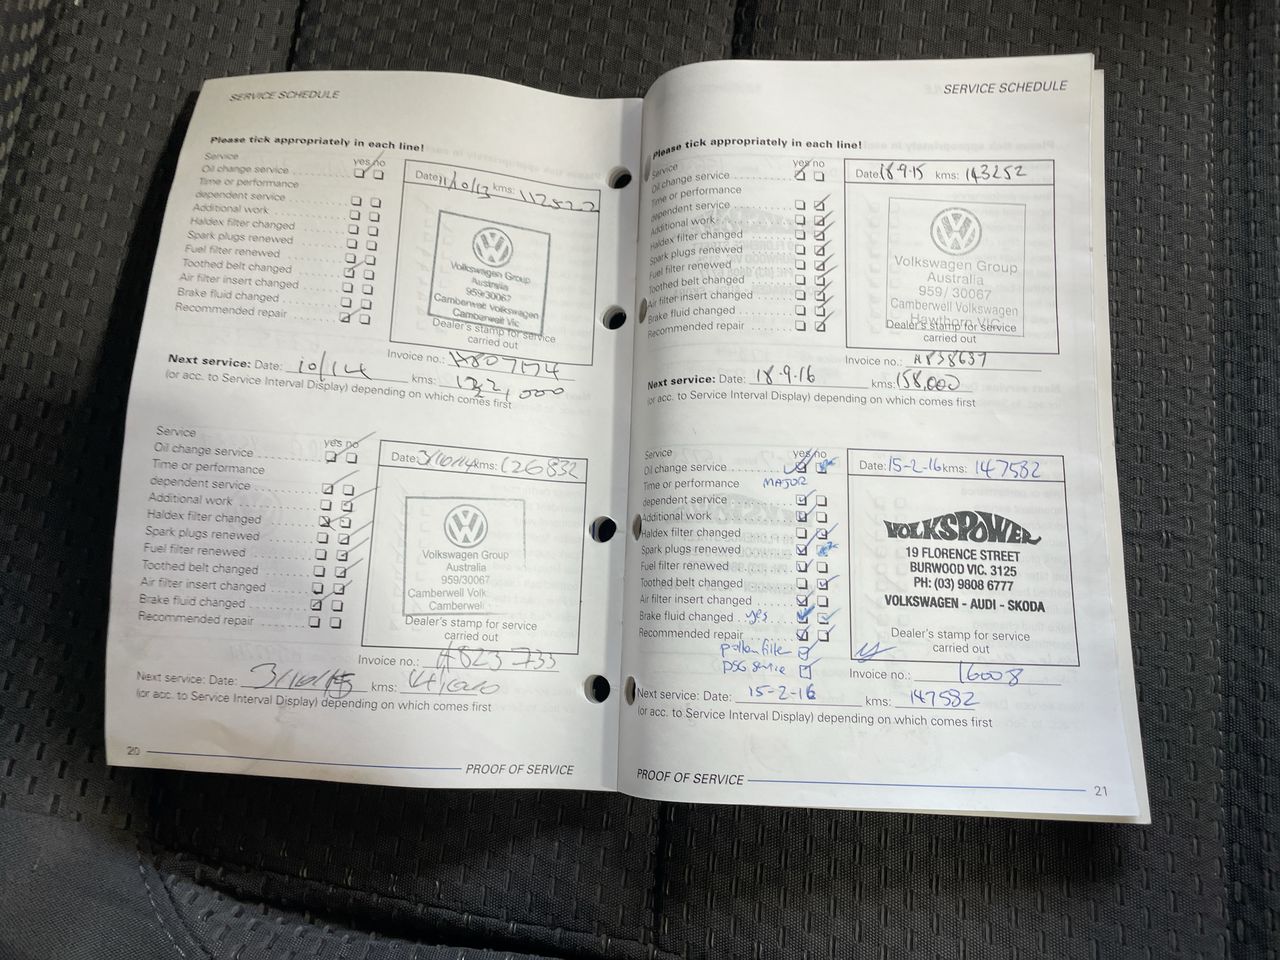 SERVICE SCHEDULE
Please tick appropriately in each line!
Service yes no
Oil change service
Time or performance
dependent service
Additional work
Haldex filter changed
Spark plugs renewed
Fuel filter renewed
Toothed belt changed
Air filter insert changed
Brake fluid changed
Recommended repair
Date: 11/10/13 kms: 112522
Volkswagen Group
Australia
959/30067
Camberwell Volkswagen
Camberwell Vic
Dealer's stamp for service
carried out
Invoice no.:
Next service: Date: 10/14 kms:
(or acc. to Service Interval Display) depending on which comes first
Service yes no
Oil change service
Time or performance
dependent service
Additional work
Haldex filter changed
Spark plugs renewed
Fuel filter renewed
Toothed belt changed
Air filter insert changed
Brake fluid changed
Recommended repair
Date: 3/10/14 kms: 126832
Volkswagen Group
Australia
959/30067
Camberwell Volk
Camberwell
Dealer's stamp for service
carried out
Invoice no.: A823733
Next service: Date: 3/10/15 kms:
(or acc. to Service Interval Display) depending on which comes first
20 PROOF OF SERVICE
SERVICE SCHEDULE
Please tick appropriately in each line!
Service yes no
Oil change service
Time or performance
dependent service
Additional work
Haldex filter changed
Spark plugs renewed
Fuel filter renewed
Toothed belt changed
Air filter insert changed
Brake fluid changed
Recommended repair
Date: 18.9.15 kms: 143252
Volkswagen Group
Australia
959/ 30067
Camberwell Volkswagen
Hawthorn VIC
Dealer's stamp for service
carried out
Invoice no.: A838637
Next service: Date: 18.9.16 kms: 158,000
(or acc. to Service Interval Display) depending on which comes first
Service yes no
Oil change service
Time or performance MAJOR
dependent service
Additional work
Haldex filter changed
Spark plugs renewed
Fuel filter renewed
Toothed belt changed
Air filter insert changed
Brake fluid changed yes
Recommended repair
pollen filter
DSG service
Date: 15-2-16 kms: 147582
VOLKSPOWER
19 FLORENCE STREET
BURWOOD VIC. 3125
PH: (03) 9808 6777
VOLKSWAGEN - AUDI - SKODA
Dealer's stamp for service
carried out
Invoice no.: 16008
Next service: Date: 15-2-16 kms: 147582
(or acc. to Service Interval Display) depending on which comes first
PROOF OF SERVICE 21